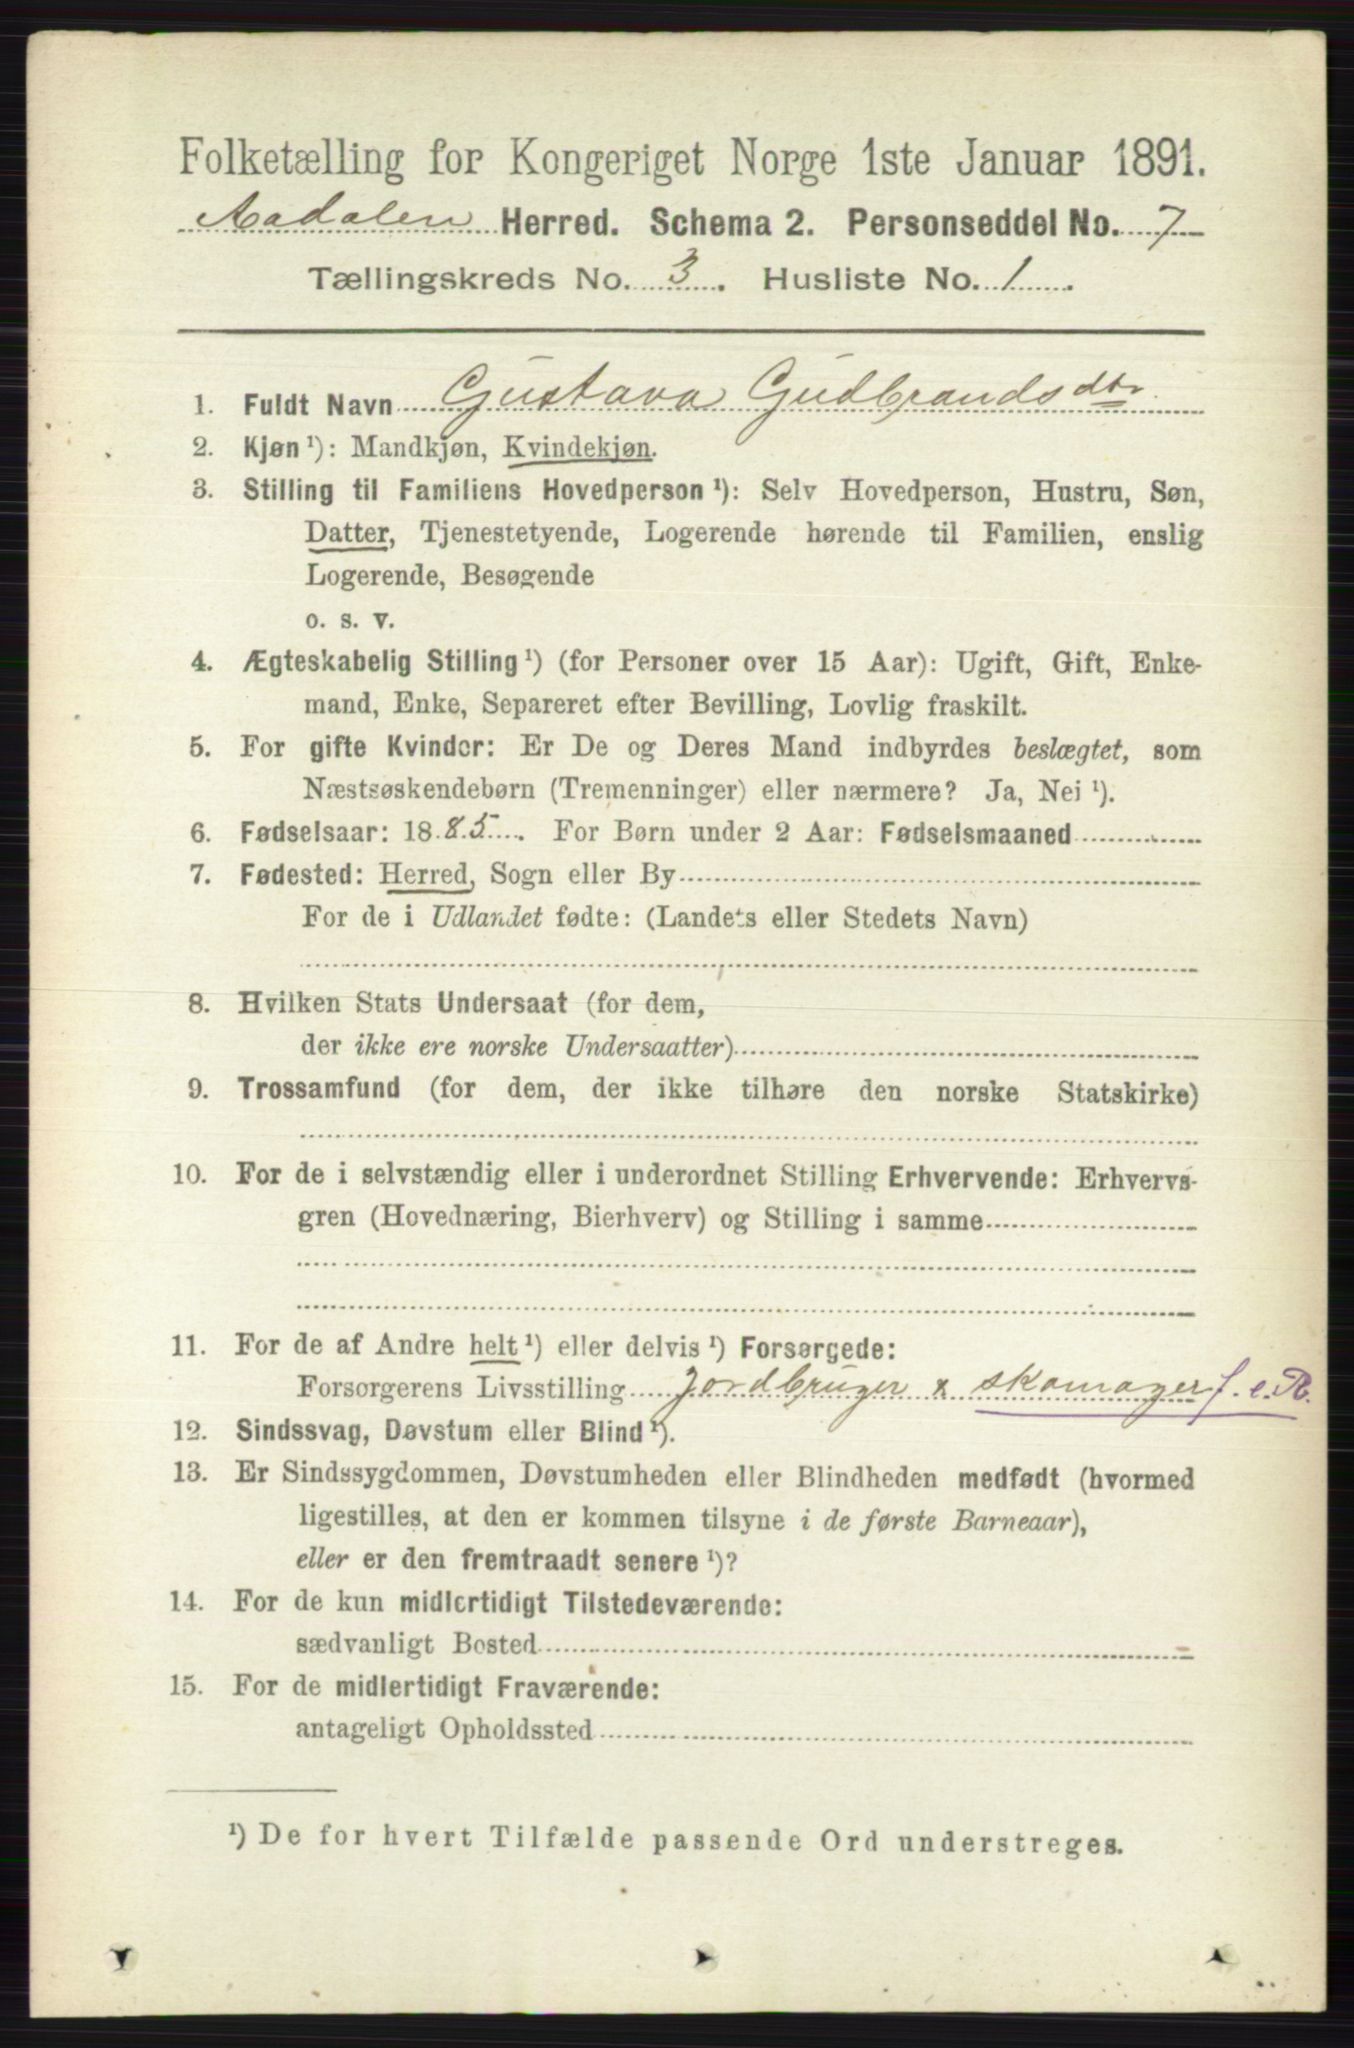 Folketælling for Kongeriget Norge 1ste Januar 1891.
Aadalen Herred. Schema 2. Personseddel No. 7
Tællingskreds No. 3. Husliste No. 1.
1. Fuldt Navn Gustava Gudbrandsdtr.
2. Kjøn ¹): Mandkjøn, Kvindekjøn.
3. Stilling til Familiens Hovedperson ¹): Selv Hovedperson, Hustru, Søn,
Datter, Tjenestetyende, Logerende hørende til Familien, enslig
Logerende, Besøgende
o. s. v.
4. Ægteskabelig Stilling ¹) (for Personer over 15 Aar): Ugift, Gift, Enke-
mand, Enke, Separeret efter Bevilling, Lovlig fraskilt.
5. For gifte Kvinder: Er De og Deres Mand indbyrdes beslægtet, som
Næstsøskendebørn (Tremenninger) eller nærmere? Ja, Nei ¹).
6. Fødselsaar: 1885. For Børn under 2 Aar: Fødselsmaaned
7. Fødested: Herred, Sogn eller By
For de i Udlandet fødte: (Landets eller Stedets Navn)
8. Hvilken Stats Undersaat (for dem,
der ikke ere norske Undersaatter)
9. Trossamfund (for dem, der ikke tilhøre den norske Statskirke)
10. For de i selvstændig eller i underordnet Stilling Erhvervende: Erhvervs-
gren (Hovednæring, Bierhverv) og Stilling i samme
11. For de af Andre helt ¹) eller delvis ¹) Forsørgede:
Forsørgerens Livsstilling Jordbruger x skomager f. e. R.
12. Sindssvag, Døvstum eller Blind ¹).
13. Er Sindssygdommen, Døvstumheden eller Blindheden medfødt (hvormed
ligestilles, at den er kommen tilsyne i de første Barneaar),
eller er den fremtraadt senere ¹)?
14. For de kun midlertidigt Tilstedeværende:
sædvanligt Bosted
15. For de midlertidigt Fraværende:
antageligt Opholdssted
¹) De for hvert Tilfælde passende Ord understreges.